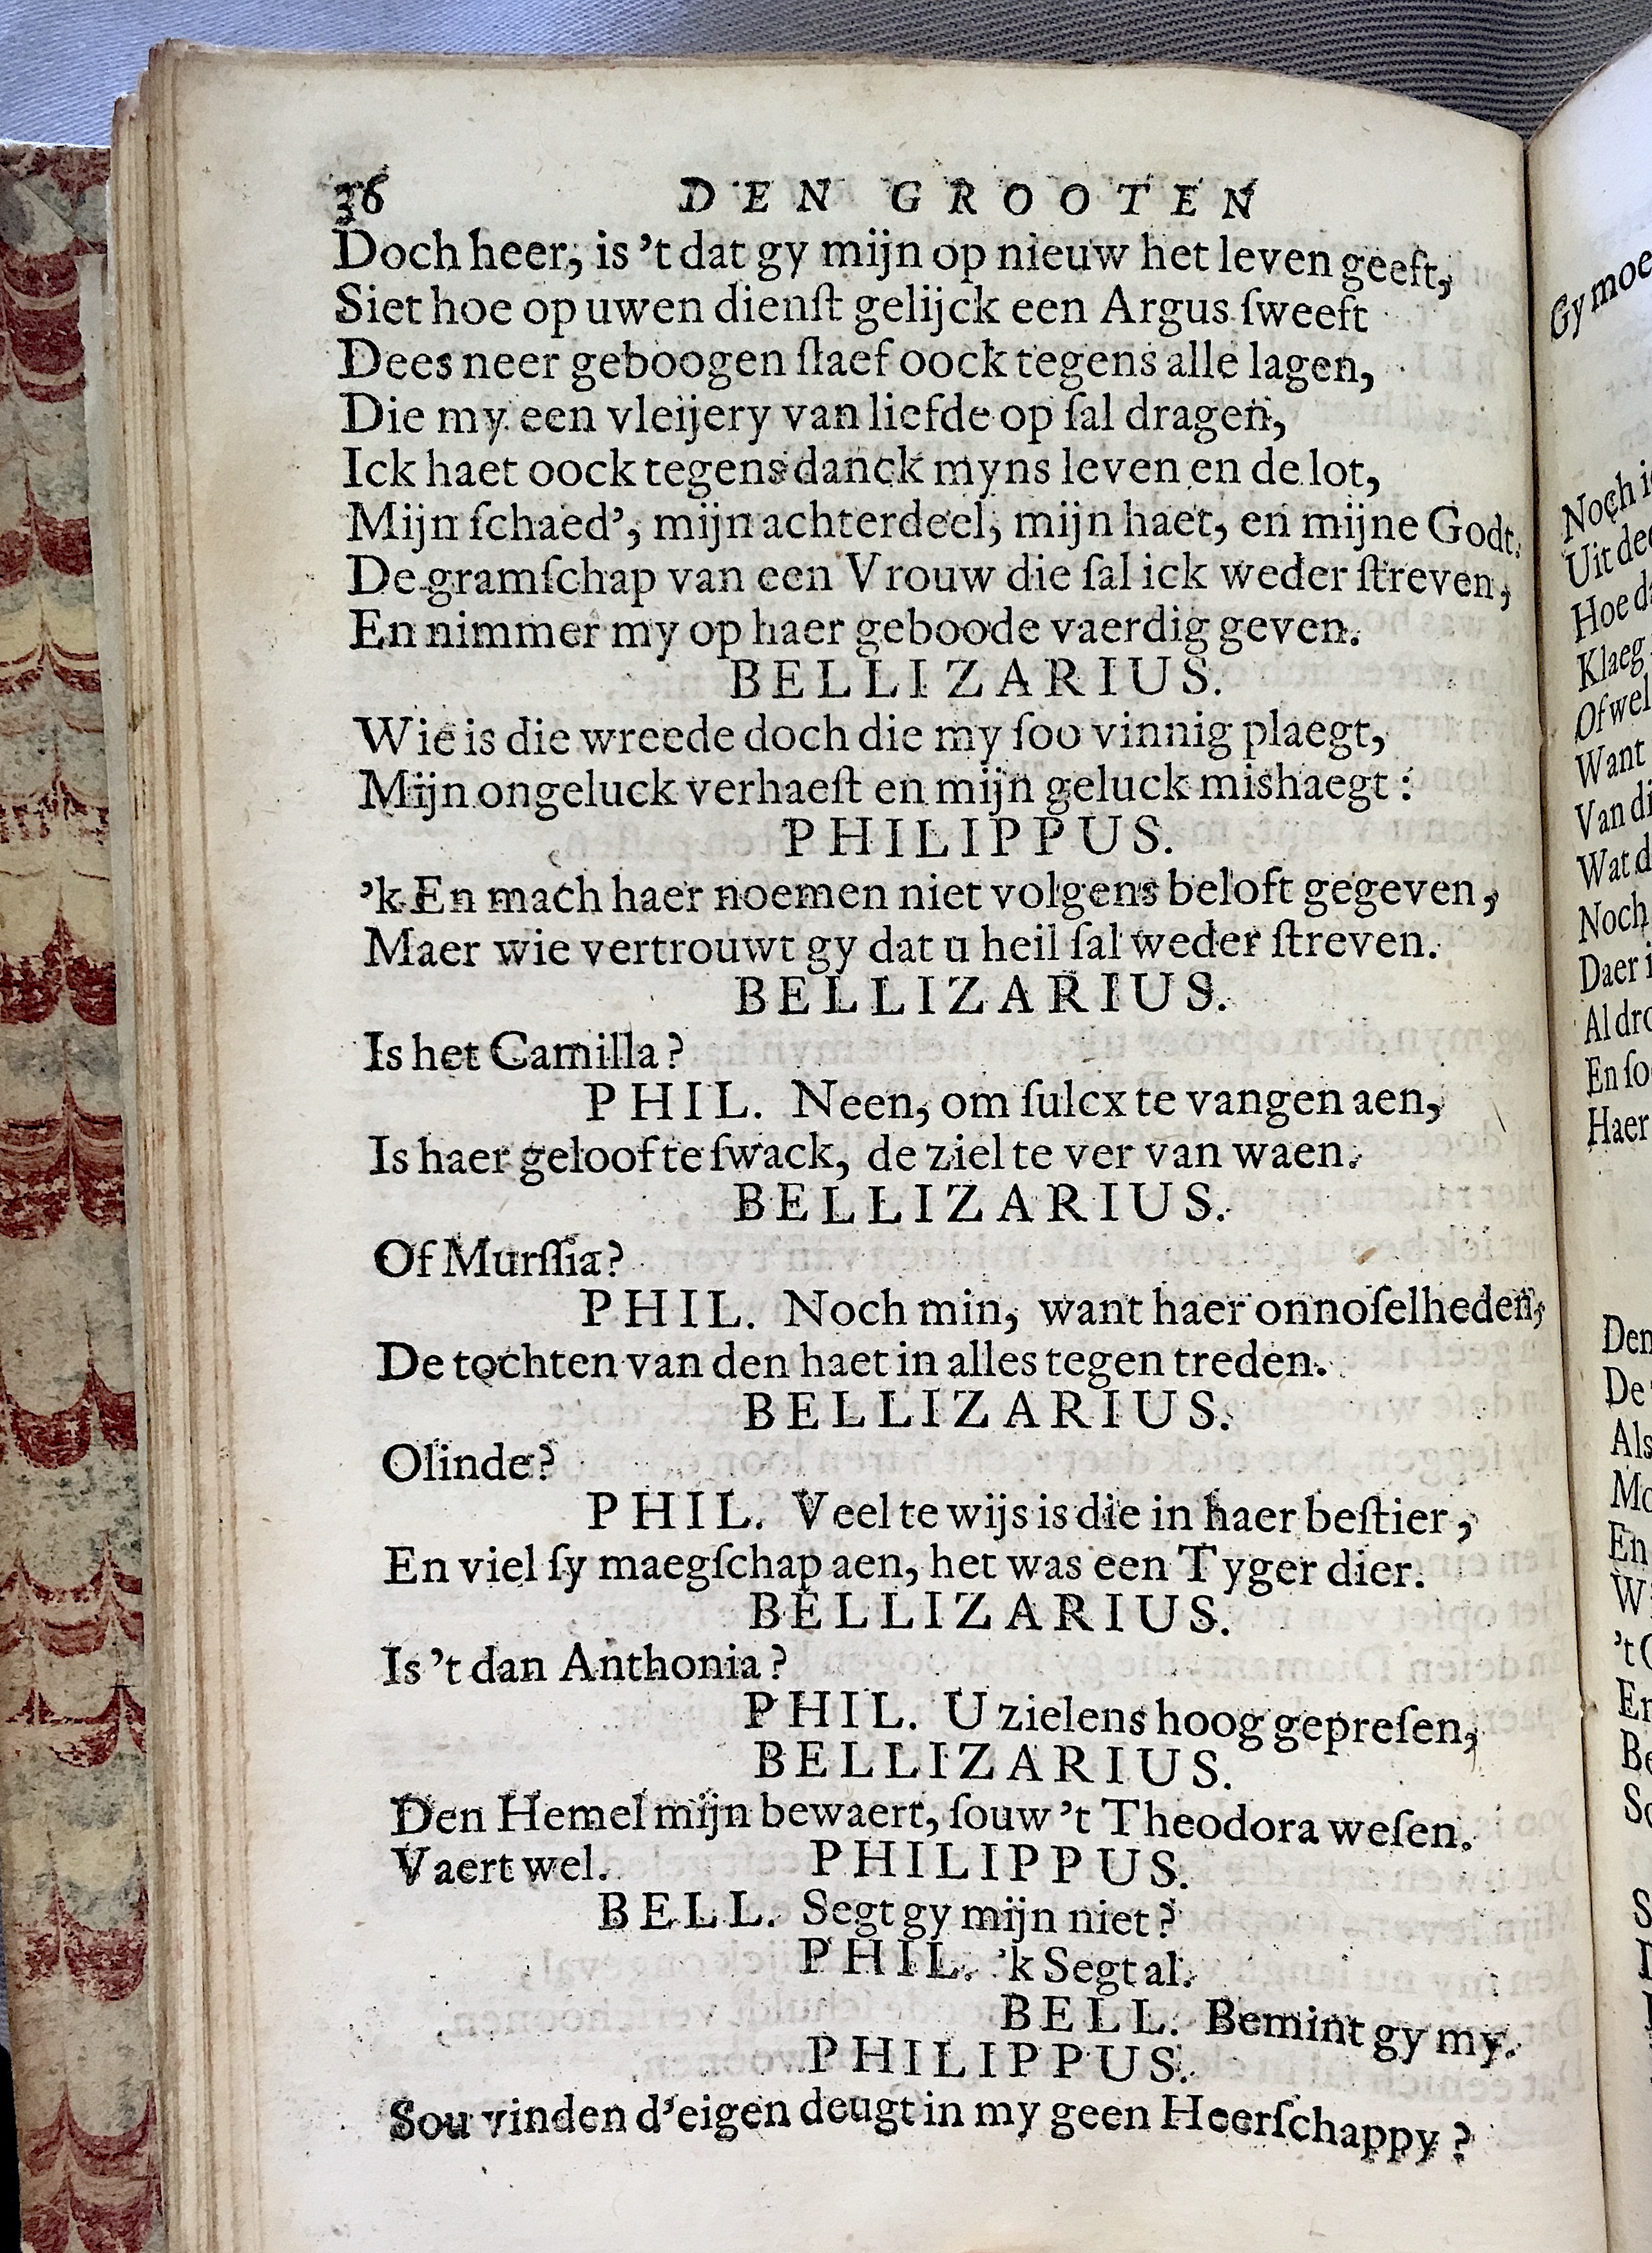 36 DEN GROOTEN
Doch heer, is 't dat gy mijn op nieuw het leven geeft,
Siet hoe op uwen dienſt gelijck een Argus ſweeft
Dees neer geboogen ſlaef oock tegens alle lagen,
Die my een vleijery van liefde op ſal dragen,
Ick haet oock tegens danck myns leven en de lot,
Mijn ſchaed', mijn achterdeel, mijn haet, en mijne Godt.
De gramſchap van een Vrouw die ſal ick weder ſtreven,
En nimmer my op haer geboode vaerdig geven.
BELLIZARIUS.
Wie is die wreede doch die my ſoo vinnig plaegt,
Mijn ongeluck verhaeſt en mijn geluck mishaegt:
PHILIPPUS.
'k En mach haer noemen niet volgens beloft gegeven,
Maer wie vertrouwt gy dat u heil ſal weder ſtreven.
BELLIZARIUS.
Is het Camilla?
PHIL. Neen, om ſulcx te vangen aen,
Is haer geloof te ſwack, de ziel te ver van waen.
BELLIZARIUS.
Of Murſſia?
PHIL. Noch min, want haer onnoſelheden,
De tochten van den haet in alles tegen treden.
BELLIZARIUS.
Olinde?
PHIL. Veel te wijs is die in haer beſtier,
En viel ſy maegſchap aen, het was een Tyger dier.
BELLIZARIUS.
Is 't dan Anthonia?
PHIL. U zielens hoog gepreſen,
BELLIZARIUS.
Den Hemel mijn bewaert, ſouw 't Theodora weſen.
Vaert wel. PHILIPPUS.
BELL. Segt gy mijn niet?
PHIL. 'k Segt al.
BELL. Bemint gy my.
PHILIPPUS.
Sou vinden d'eigen deugt in my geen Heerſchappy?
Gy moe
Noch
Uit dee
Hoe d
Klaeg
Of wel
Want
Van di
Wat d
Noch
Daer i
Al dro
En ſo
Haer
Den
De
Als
Mo
En
W
't
En
Be
So
S